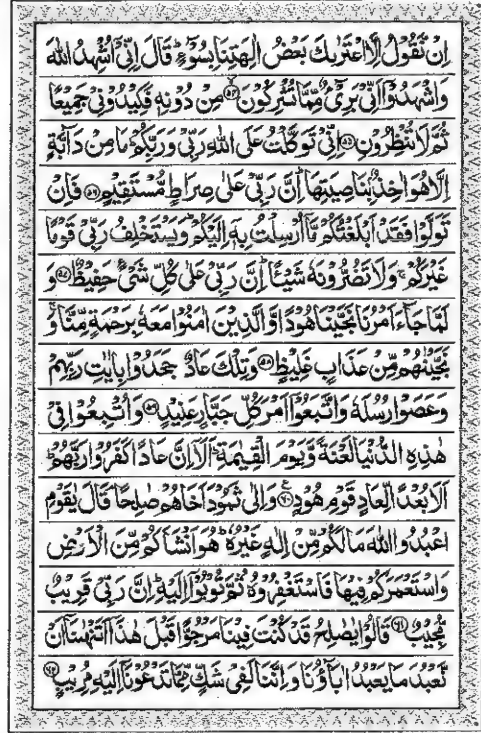 اِنْ نَّقُوْلُ اِلَّا اعْتَرٰىكَ بَعْضُ اٰلِهَتِنَا بِسُوْٓءٍ ؕ قَالَ اِنِّىْۤ اُشْهِدُ اللّٰهَ
وَاشْهَدُوْۤا اَنِّىْ بَرِىْٓءٌ مِّمَّا تُشْرِكُوْنَ ۙ﴿۵۴﴾ مِنْ دُوْنِهٖ فَكِيْدُوْنِىْ جَمِيْعًا
ثُمَّ لَا تُنْظِرُوْنِ ﴿۵۵﴾ اِنِّىْ تَوَكَّلْتُ عَلَى اللّٰهِ رَبِّىْ وَرَبِّكُمْ ؕ مَا مِنْ دَآبَّةٍ
اِلَّا هُوَ اٰخِذٌۢ بِنَاصِيَتِهَا ؕ اِنَّ رَبِّىْ عَلٰى صِرَاطٍ مُّسْتَقِيْمٍ ﴿۵۶﴾ فَاِنْ
تَوَلَّوْا فَقَدْ اَبْلَغْتُكُمْ مَّاۤ اُرْسِلْتُ بِهٖۤ اِلَيْكُمْ ؕ وَيَسْتَخْلِفُ رَبِّىْ قَوْمًا
غَيْرَكُمْ ۚ وَلَا تَضُرُّوْنَهٗ شَيْئًا ؕ اِنَّ رَبِّىْ عَلٰى كُلِّ شَىْءٍ حَفِيْظٌ ﴿۵۷﴾ وَ
لَمَّا جَآءَ اَمْرُنَا نَجَّيْنَا هُوْدًا وَّالَّذِيْنَ اٰمَنُوْا مَعَهٗ بِرَحْمَةٍ مِّنَّا ۚ وَ
نَجَّيْنٰهُمْ مِّنْ عَذَابٍ غَلِيْظٍ ﴿۵۸﴾ وَتِلْكَ عَادٌ ۟ جَحَدُوْا بِاٰيٰتِ رَبِّهِمْ
وَعَصَوْا رُسُلَهٗ وَاتَّبَعُوْۤا اَمْرَ كُلِّ جَبَّارٍ عَنِيْدٍ ﴿۵۹﴾ وَاُتْبِعُوْا فِىْ
هٰذِهِ الدُّنْيَا لَعْنَةً وَّيَوْمَ الْقِيٰمَةِ ؕ اَلَاۤ اِنَّ عَادًا كَفَرُوْا رَبَّهُمْ ؕ
اَلَا بُعْدًا لِّعَادٍ قَوْمِ هُوْدٍ ﴿۶۰﴾ وَاِلٰى ثَمُوْدَ اَخَاهُمْ صٰلِحًا ۘ قَالَ يٰقَوْمِ
اعْبُدُوا اللّٰهَ مَا لَكُمْ مِّنْ اِلٰهٍ غَيْرُهٗ ؕ هُوَ اَنْشَاَكُمْ مِّنَ الْاَرْضِ
وَاسْتَعْمَرَكُمْ فِيْهَا فَاسْتَغْفِرُوْهُ ثُمَّ تُوْبُوْۤا اِلَيْهِ ؕ اِنَّ رَبِّىْ قَرِيْبٌ
مُّجِيْبٌ ﴿۶۱﴾ قَالُوْا يٰصٰلِحُ قَدْ كُنْتَ فِيْنَا مَرْجُوًّا قَبْلَ هٰذَاۤ اَتَنْهٰىنَاۤ اَنْ
نَّعْبُدَ مَا يَعْبُدُ اٰبَآؤُنَا وَاِنَّنَا لَفِىْ شَكٍّ مِّمَّا تَدْعُوْنَاۤ اِلَيْهِ مُرِيْبٍ ﴿۶۲﴾